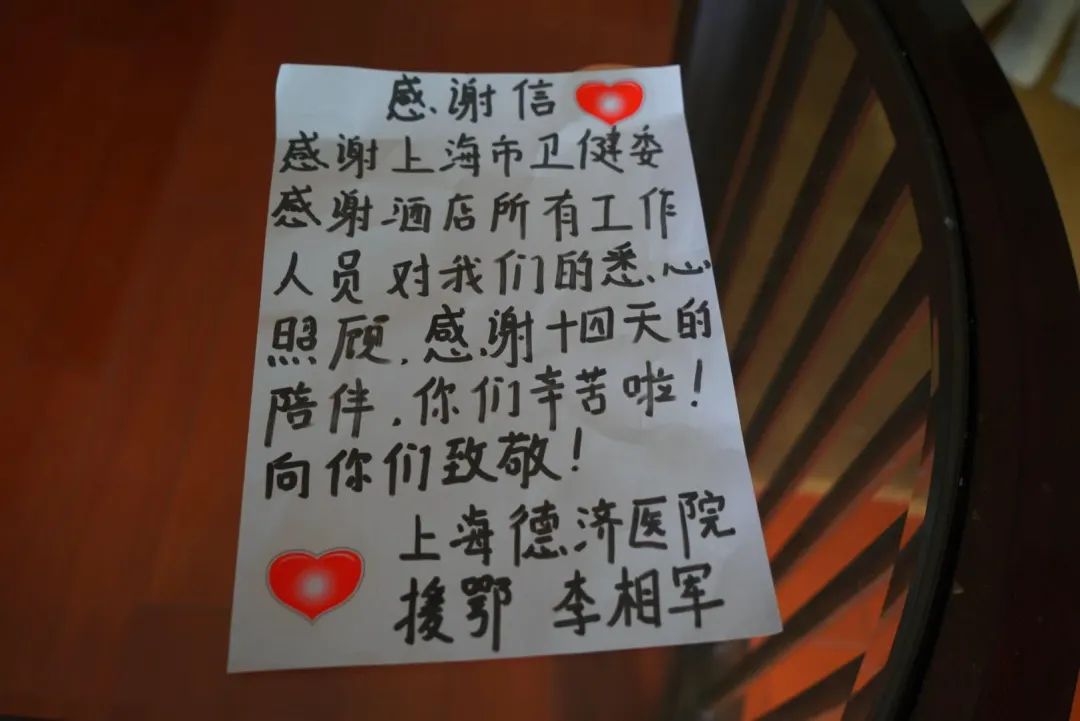 感谢信
感谢上海市卫健委
感谢酒店所有工作
人员对我们的悉心
照顾，感谢十四天的
陪伴，你们辛苦啦！
向你们致敬！
上海德济医院
援鄂 李相军